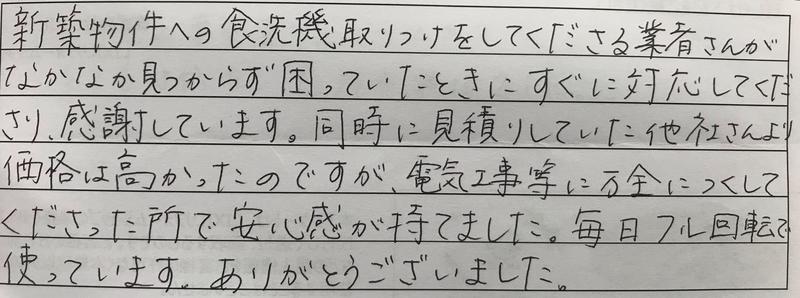 新築物件への食洗機取りつけをしてくださる業者さんが
なかなか見つからず困っていたときにすぐに対応してくだ
さり、感謝しています。同時に見積りしていた他社さんより
価格は高かったのですが、電気工事等に万全につくして
くださった所で安心感が持てました。毎日フル回転で
使っています。ありがとうございました。